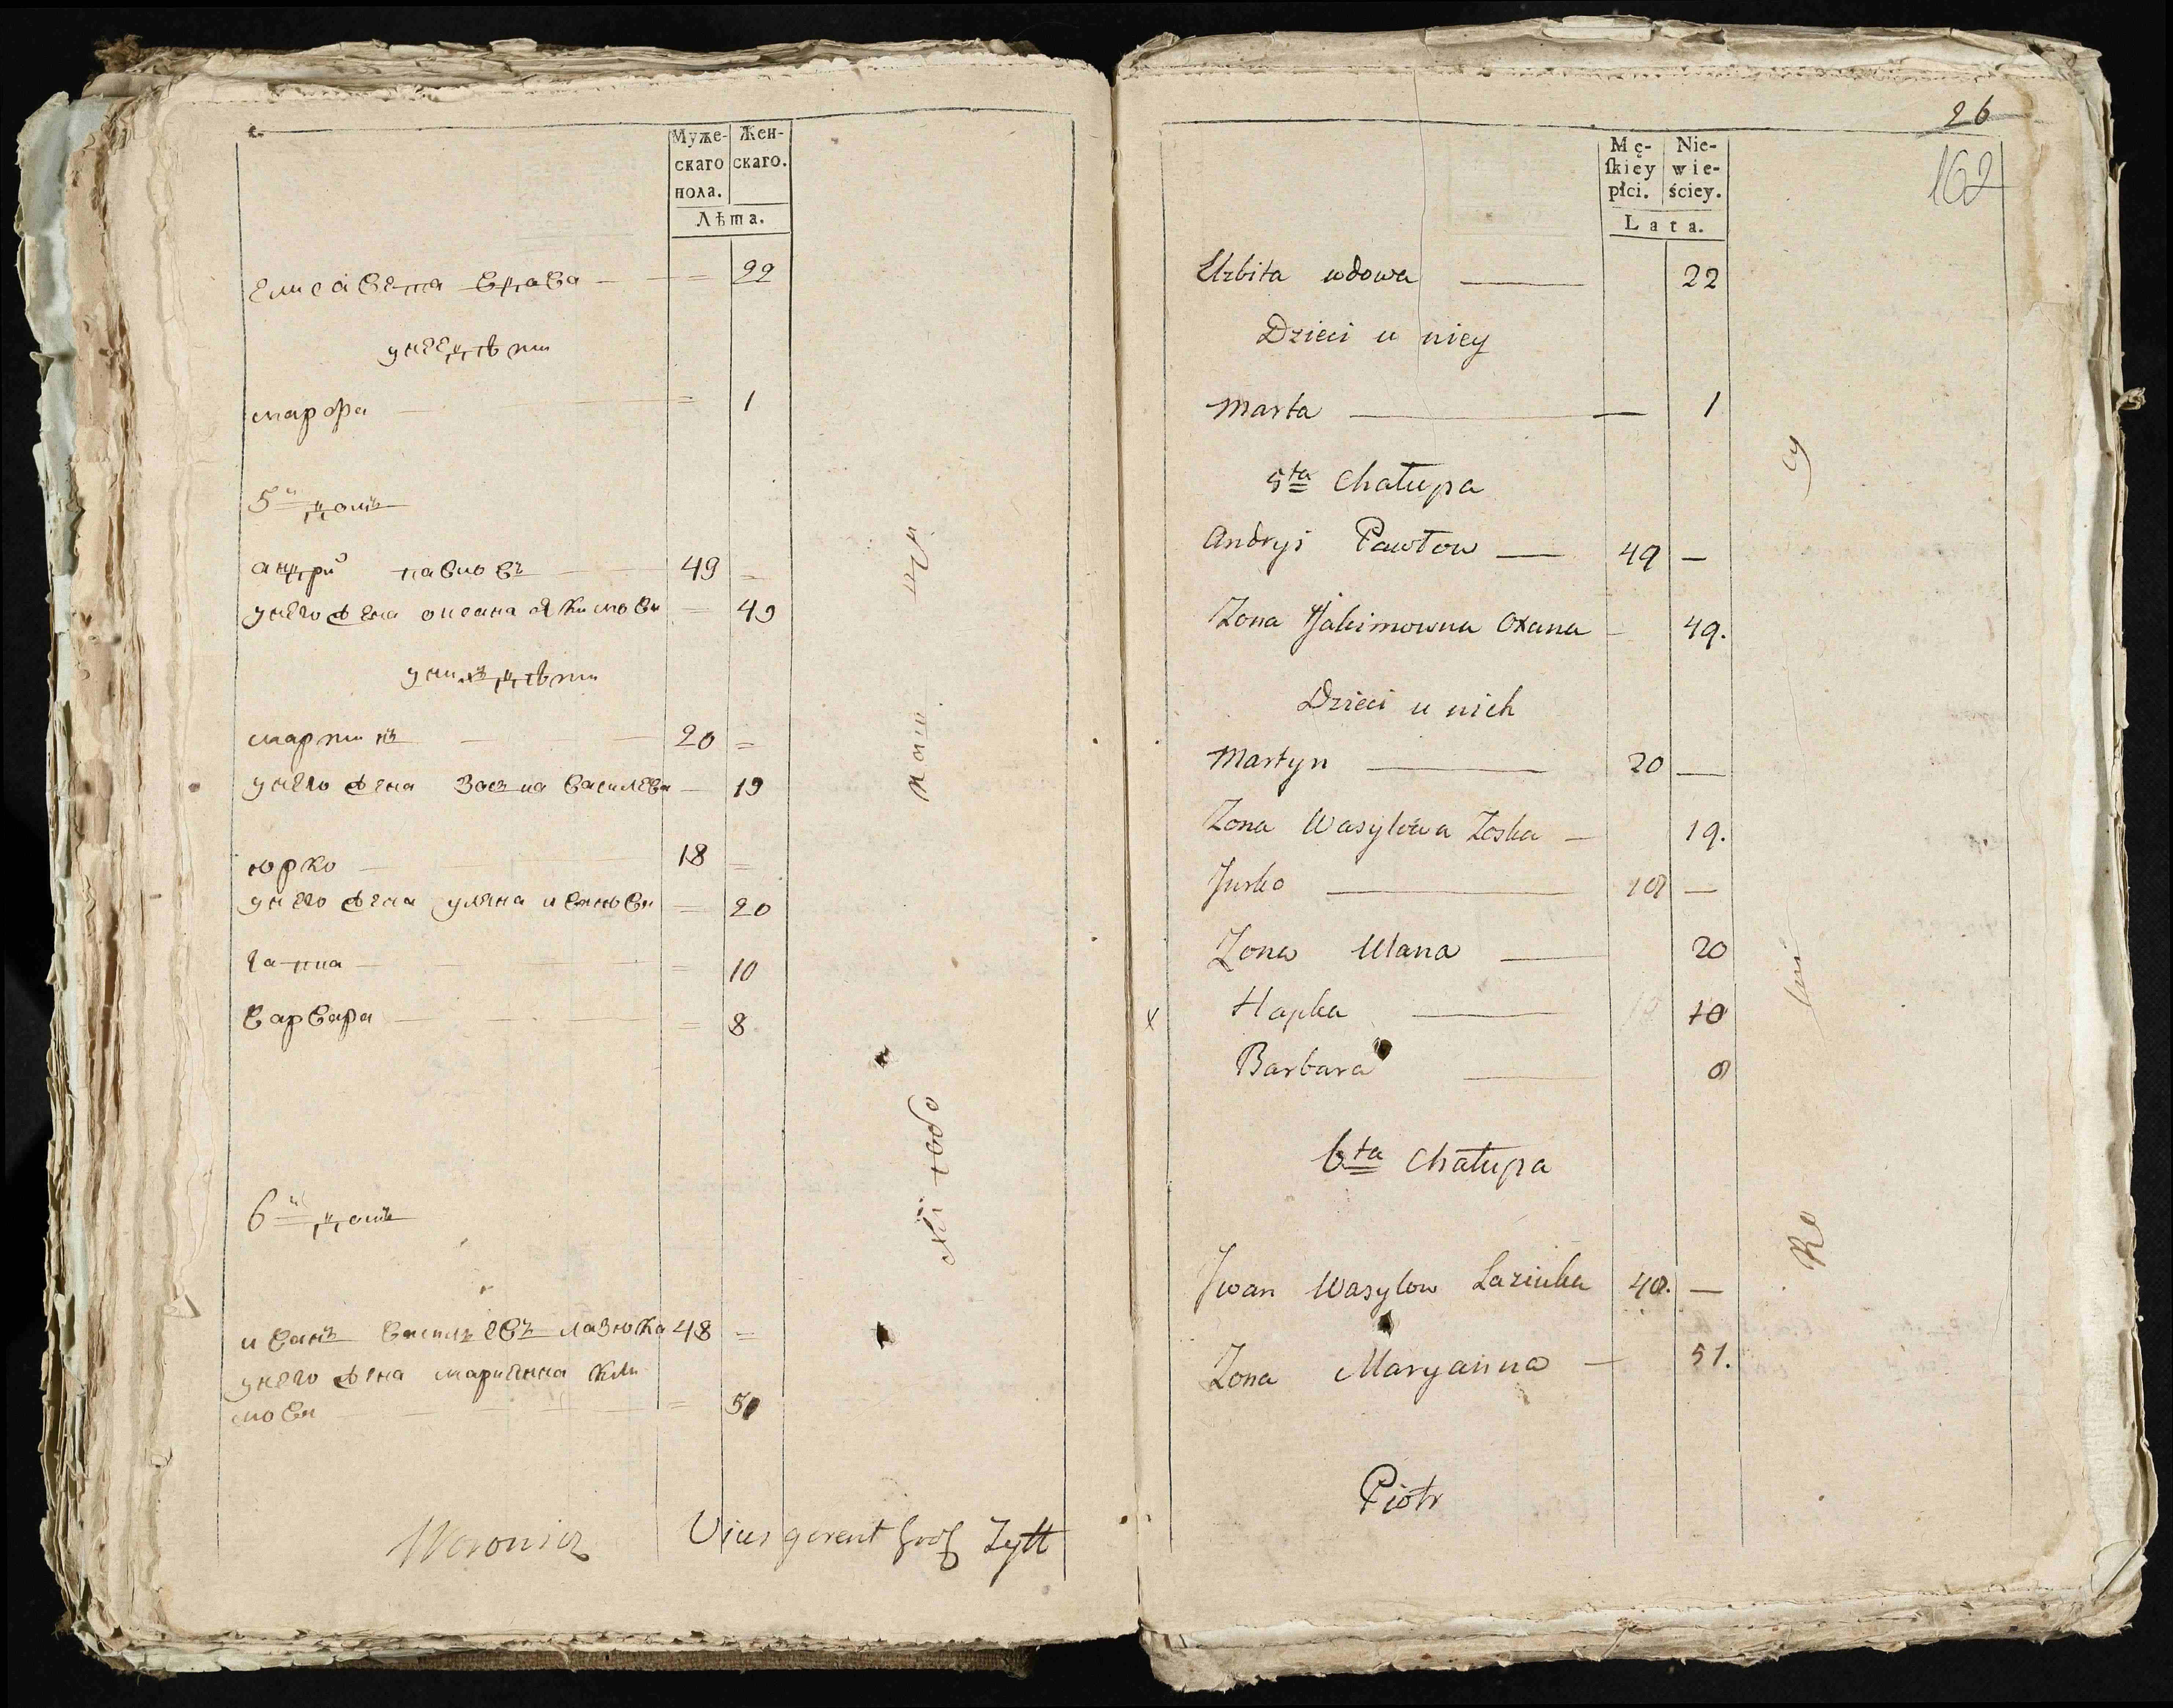 Муже-
скаго
пола.
Жен-
скаго.
Лѣта.
Елисавета вдова — = 22
у нее дѣти
марфа — = 1
5й домъ
андрй павловъ — 49 =
у него жена оксана Якимова = 49
у нихъ дѣти
мартинъ — 20 =
у него жена Зоська василева — 19
юрко — 18 =
у него жена уляна = 20
гапка — = 10
варвара — = 8
6й домъ
иванъ васильевъ лазюка 48 =
у него жена мариянна кли
мова — =
Woronicz Vices gerent Zytt
26
162
Mę-
ſkiey
płci.
Nie-
wie-
ściey.
Lata.
Elzbita wdowa — 22
Dzieci u niey
Marta — — 1
5ta Chałupa
Andryi Pawłow — 49 —
Zona Jakimowna Oxana — 49.
Dzieci u nich
Martyn — 20 —
Zona Wasylowa Zoska — 19.
Jurko — 18 —
Zona Ulana — 20
x Hapka — 10
Barbara — 8
6ta Chałupa
Jwan Wasylow Laziuka 48. —
Zona Maryanna — 51.
Piotr